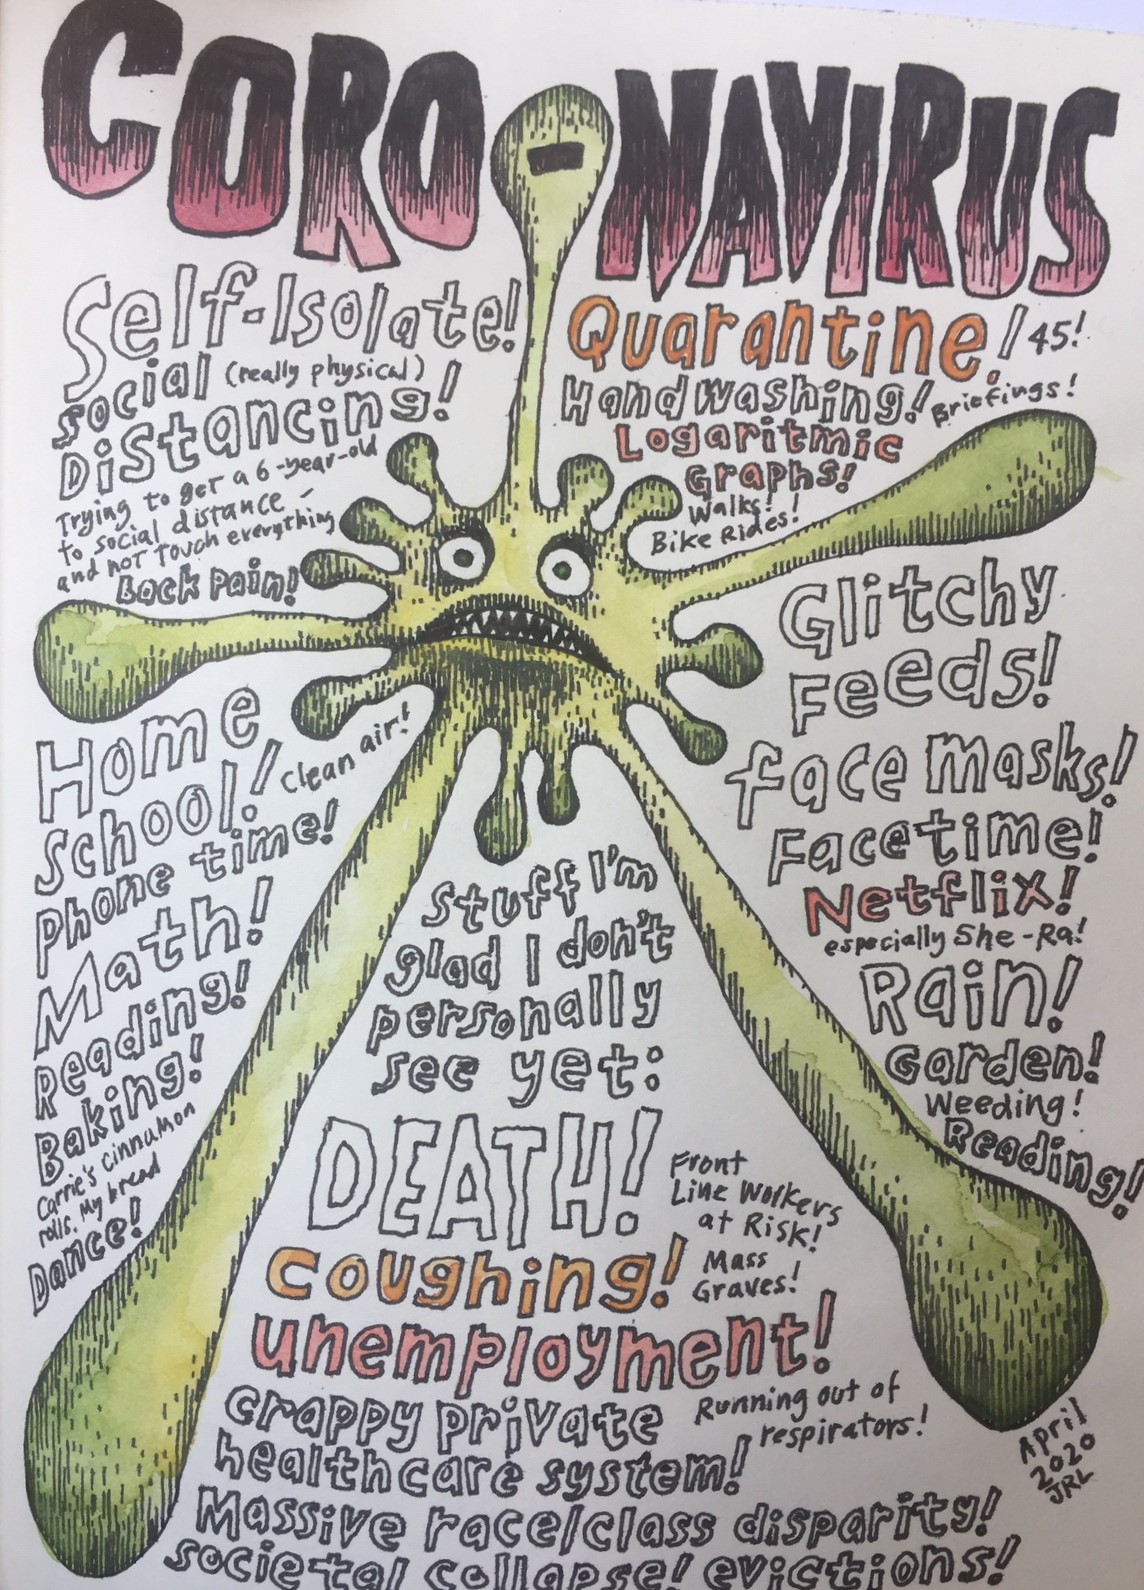 CORONAVIRUS
Self-Isolate!
Social (really physical)
Distancing!
Trying to get a 6-year-old
to social distance -
and not touch everything
Back pain!
Home
School!
Clean air!
Phone time!
Math!
Reading!
Baking!
Carrie's cinnamon
rolls. My bread
Dance!
Quarantine!
45!
Handwashing!
Briefings!
Logaritmic
Graphs!
Walks!
Bike Rides!
Glitchy
Feeds!
face masks!
Facetime!
Netflix!
especially She-Ra!
Rain!
Garden!
Weeding!
Reading!
Stuff I'm
glad I don't
personally
see yet:
DEATH!
Front
Line Workers
at Risk!
Coughing!
Mass
Graves!
unemployment!
Running out of
respirators!
crappy private
healthcare system!
Massive race/class disparity!
societal collapse! evictions!
April
2020
JRL